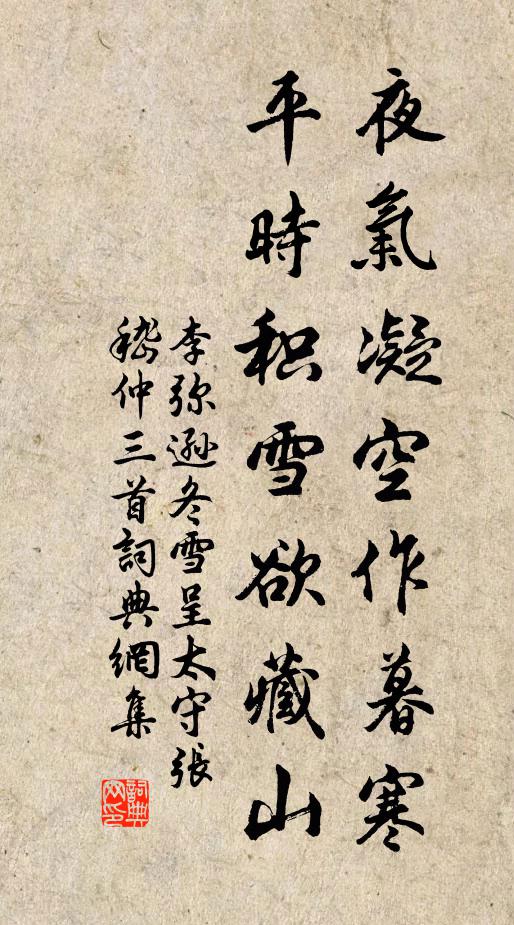 夜氣凝空作暮寒
平時积雪欲藏山
李弥遜冬雪呈太守張
嵇仲三首詞典網集
詞典
网印